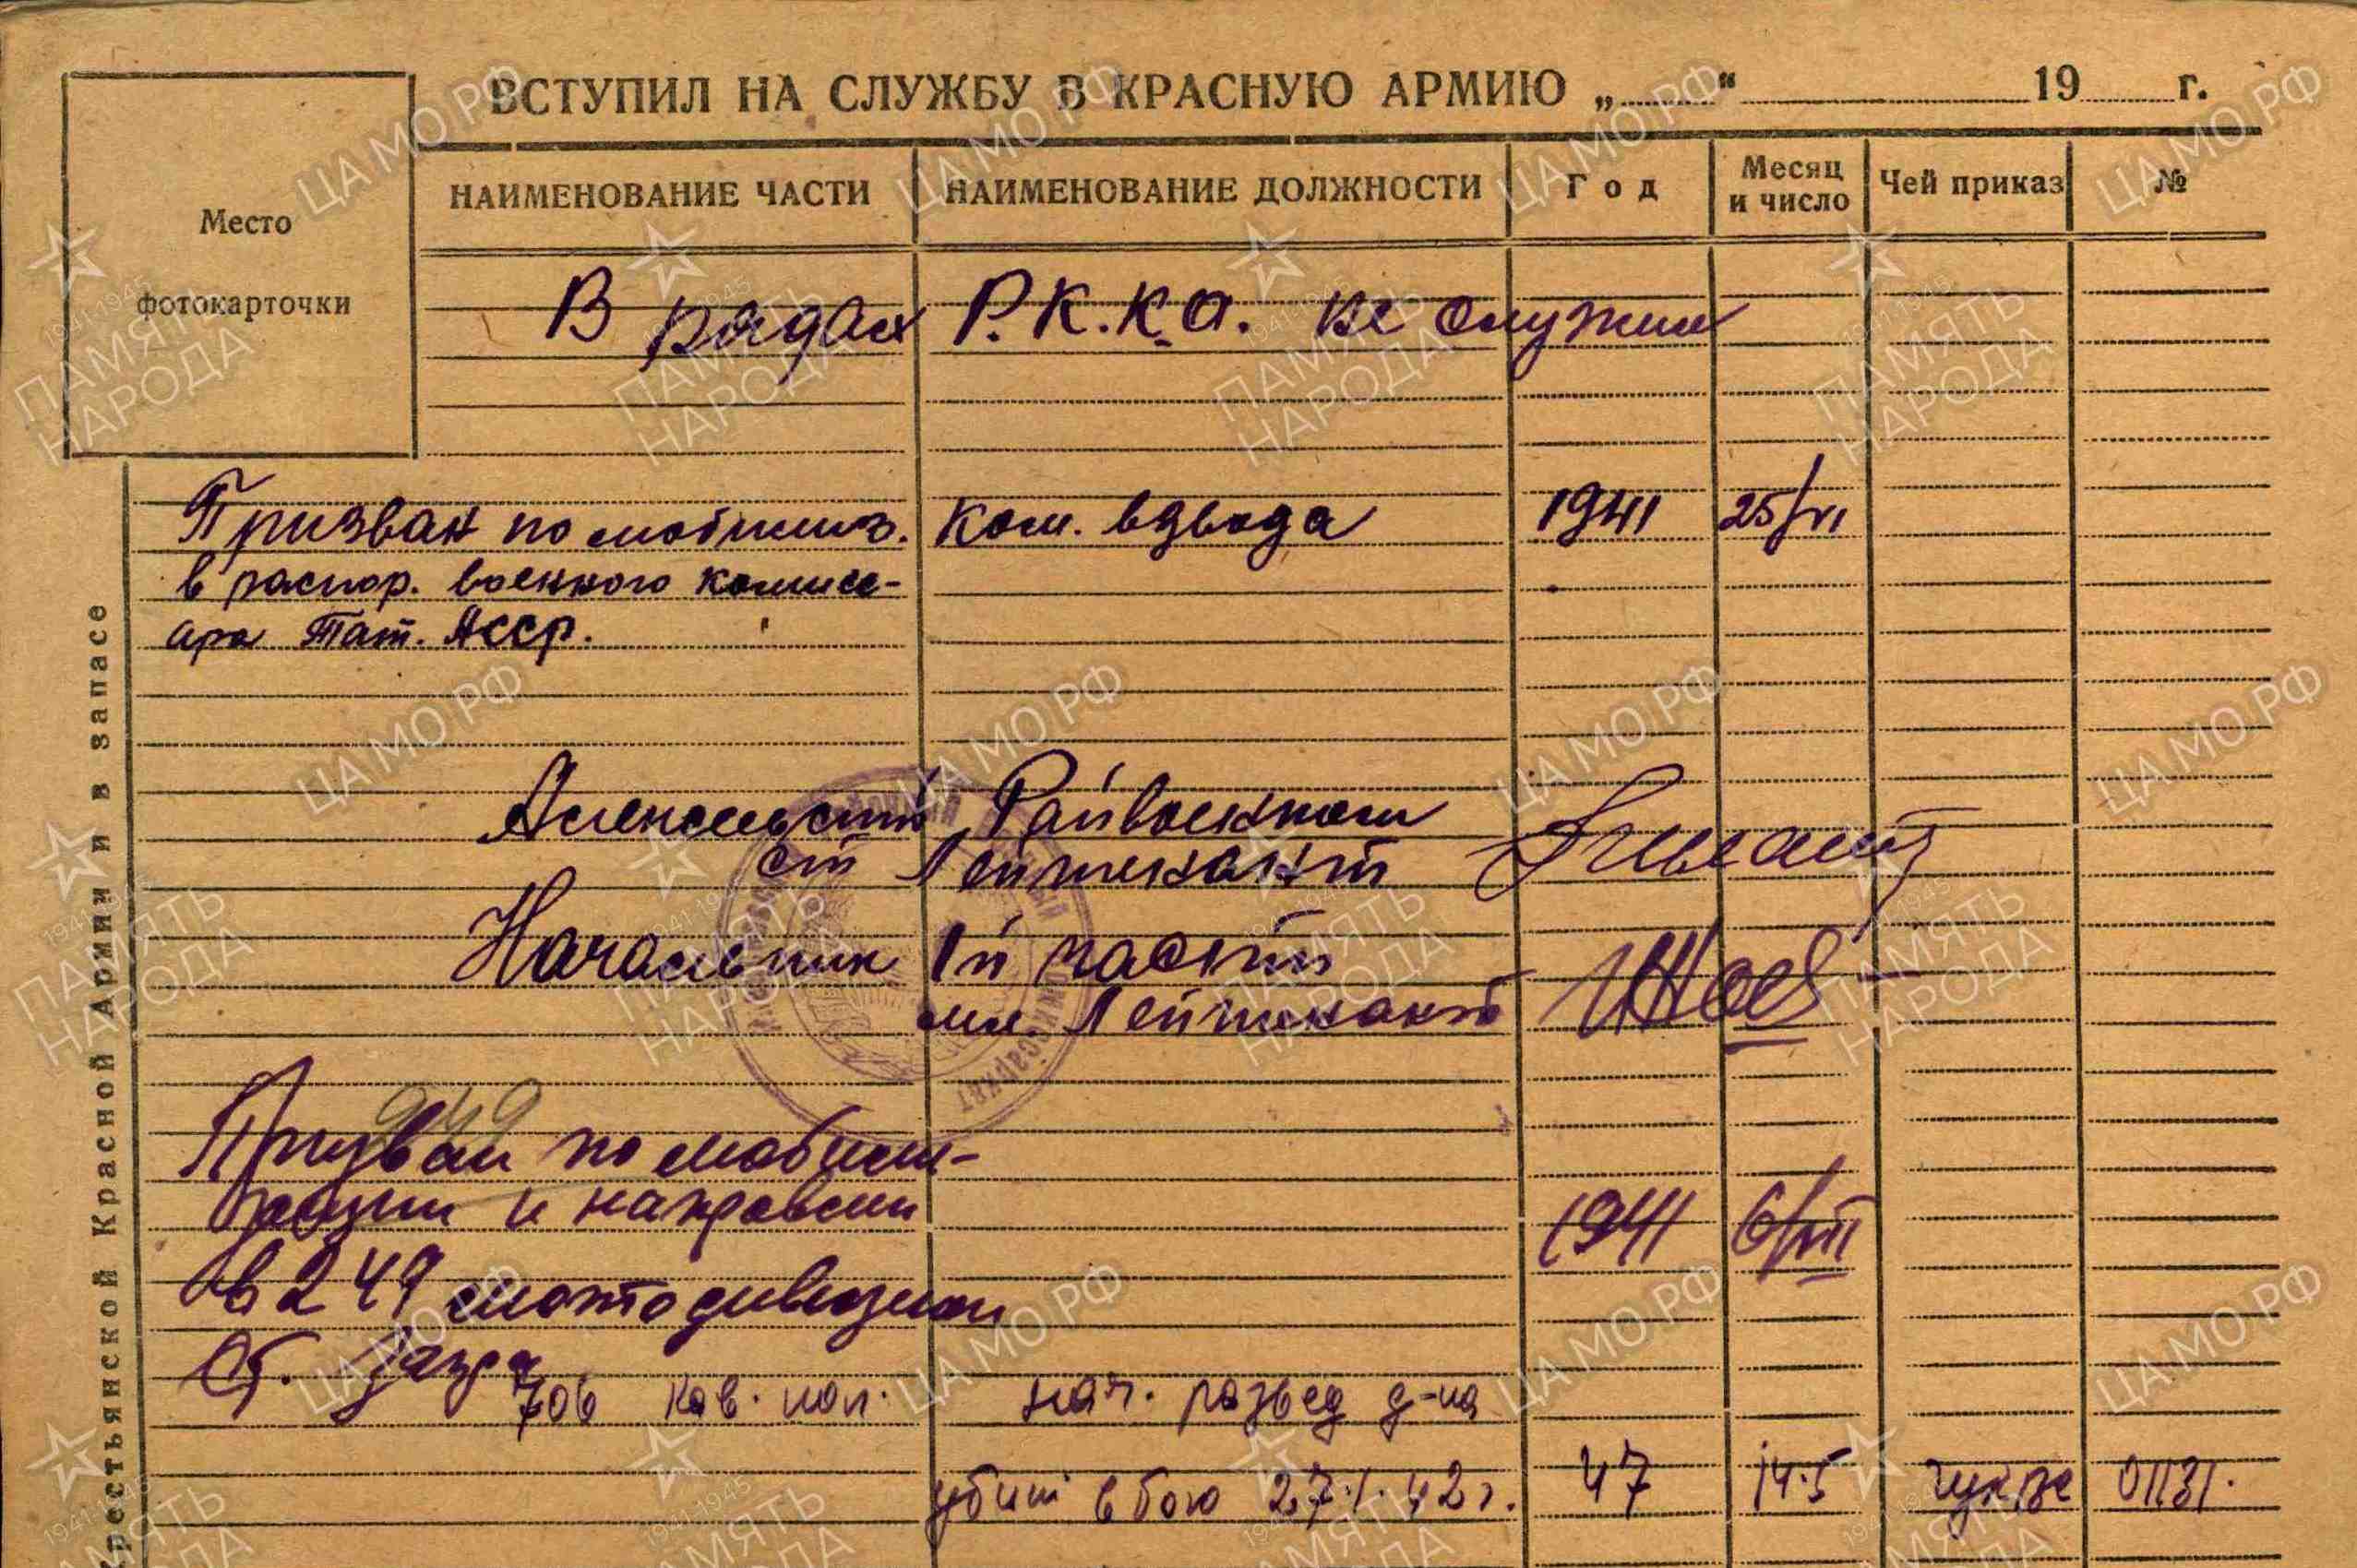 ВСТУПИЛ НА СЛУЖБУ В КРАСНУЮ АРМИЮ „ “ 19 г.
Место
фотокарточки
НАИМЕНОВАНИЕ ЧАСТИ НАИМЕНОВАНИЕ ДОЛЖНОСТИ Год Месяц и число Чей приказ №
В рядах Р.К.К.А. не служил
Призван по мобилиз. Ком. взвода 1941 25/VI
в распор. военного комисс-
ара Тат. АССР.
Райвоенком
ст Лейтенант
Начальник 1й части
мл. Лейтенант
949
Призван по мобили-
зации и направлен 1941 6/VII
в 249
Ст.
706 кав. пол. нач. развед д-на
убит в бою 27.1.42 г. 47 14.5 гук вс 01131.
Крестьянской Красной Армии и в запасе
ЦАМО РФ
1941-1945
ПАМЯТЬ
НАРОДА